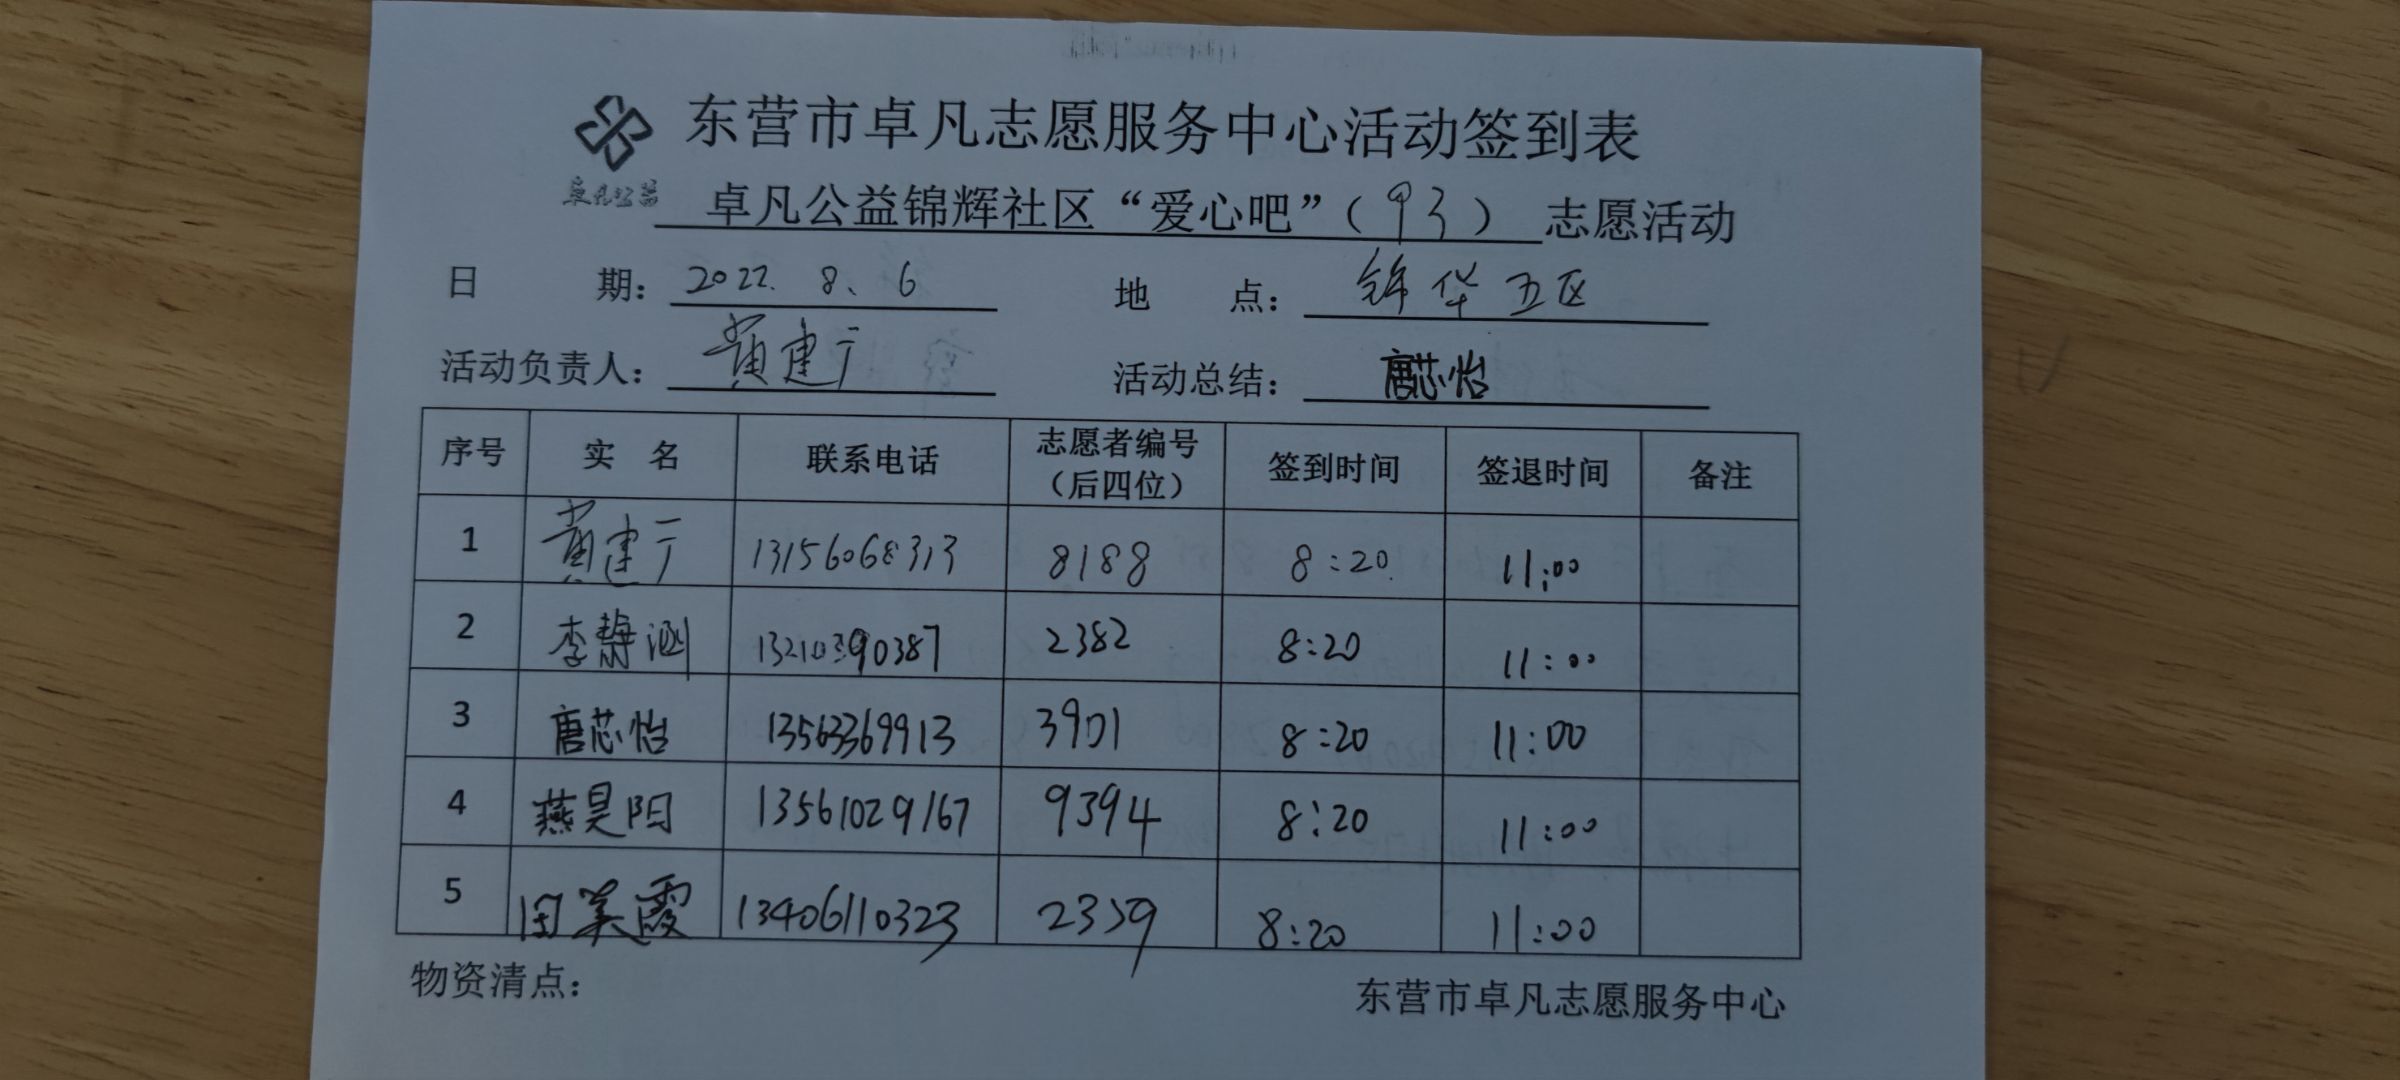 东营市卓凡志愿服务中心活动签到表
卓凡公益
卓凡公益锦辉社区“爱心吧”（93）志愿活动
日 期：2022.8.6 地 点：锦华五区
活动负责人：黄建广 活动总结：唐芯怡
序号 实 名 联系电话 志愿者编号（后四位） 签到时间 签退时间 备注
1 黄建广 13156068313 8188 8:20 11:00
2 李静涵 13210390387 2382 8:20 11:00
3 唐芯怡 13563369913 3901 8:20 11:00
4 燕昊阳 13561029167 9394 8:20 11:00
5 田美霞 13406110323 2359 8:20 11:00
物资清点： 东营市卓凡志愿服务中心